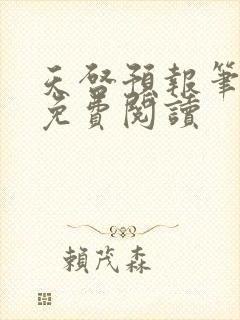 天啓預報筆
免費閱讀
賴茂森